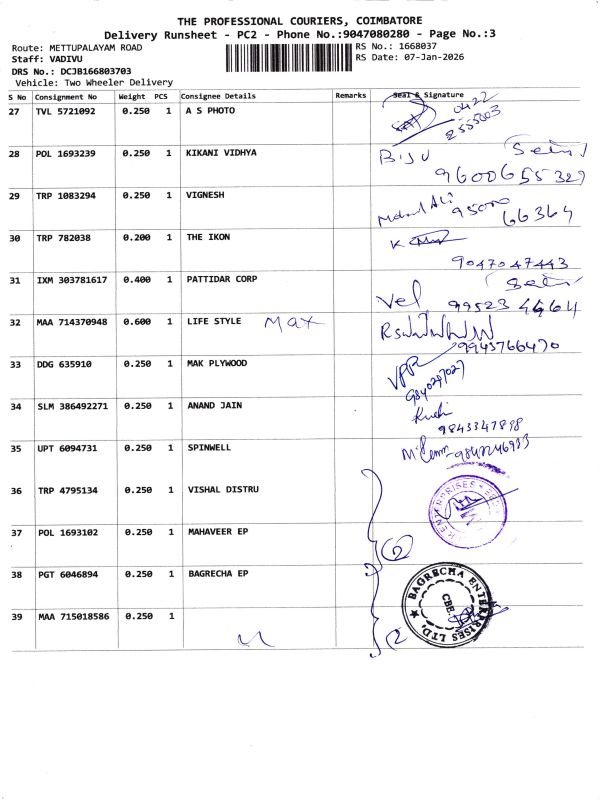 THE PROFESSIONAL COURIERS, COIMBATORE
Delivery Runsheet - PC2 - Phone No.:9047080280 - Page No.:3
Route: METTUPALAYAM ROAD
RS No.: 1668037
Staff: VADIVU
RS Date: 07-Jan-2026
DRS No.: DCJB166803703
Vehicle: Two Wheeler Delivery
S No Consignment No Weight PCS Consignee Details Remarks Seal & Signature
27 TVL 5721092 0.250 1 A S PHOTO 0422
2555003
28 POL 1693239 0.250 1 KIKANI VIDHYA BIJU
9600655329
29 TRP 1083294 0.250 1 VIGNESH Mohamd Ali 95000
66364
30 TRP 782038 0.200 1 THE IKON K
9047047443
31 IXM 303781617 0.400 1 PATTIDAR CORP Vel 99523 4664
32 MAA 714370948 0.600 1 LIFE STYLE Max
9943766470
33 DDG 635910 0.250 1 MAK PLYWOOD
9840297027
34 SLM 386492271 0.250 1 ANAND JAIN
9843347898
35 UPT 6094731 0.250 1 SPINWELL
36 TRP 4795134 0.250 1 VISHAL DISTRU
ENTERPRISES
37 POL 1693102 0.250 1 MAHAVEER EP 2
38 PGT 6046894 0.250 1 BAGRECHA EP
BAGRECHA ENTERPRISES LTD.
CBE
39 MAA 715018586 0.250 1 2